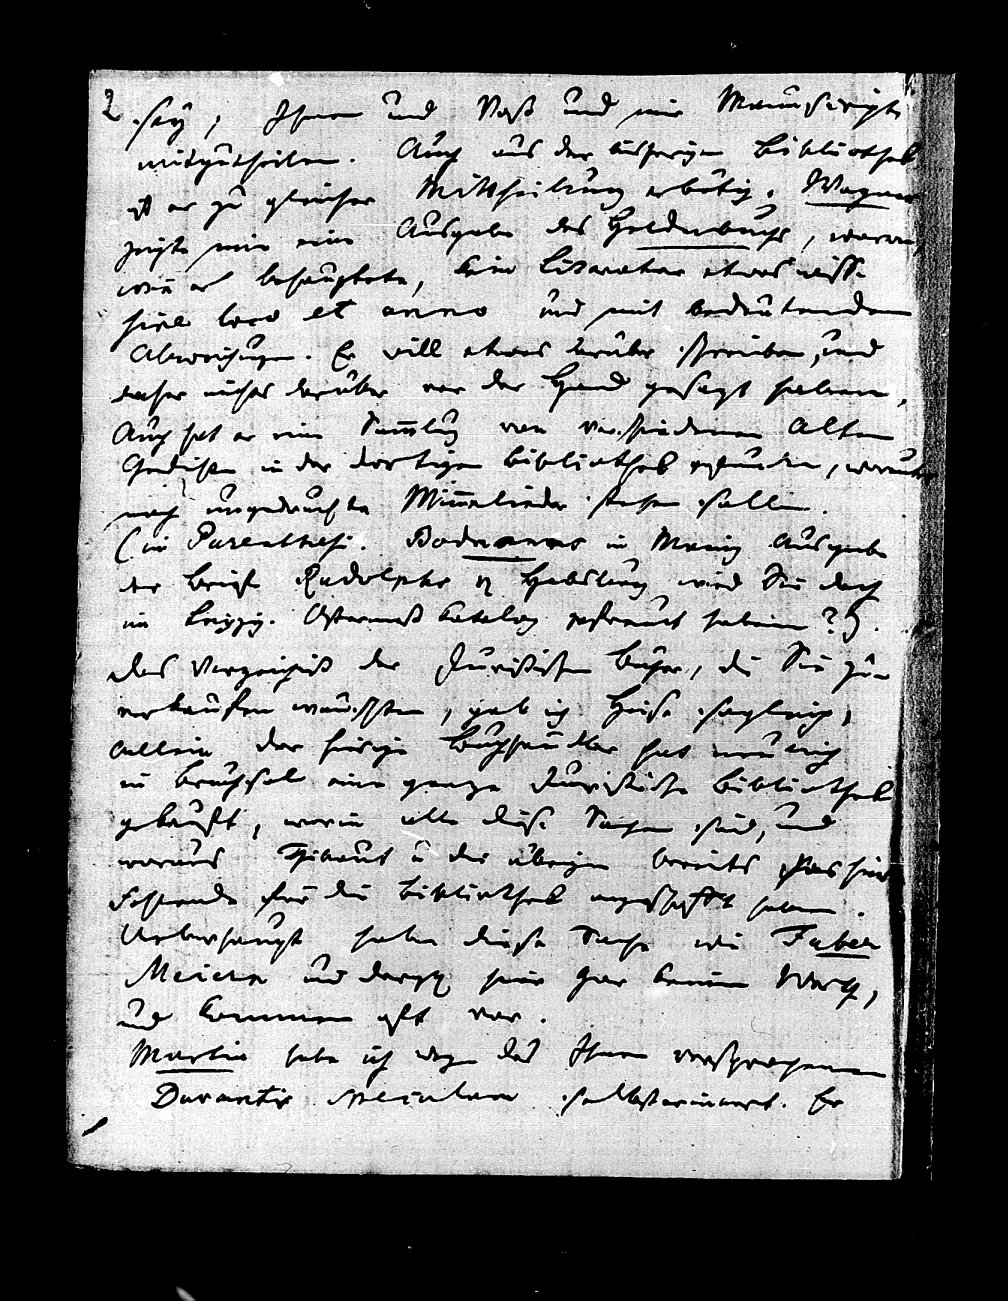 2
sey, Ihnen und Voß und mir Manuscripte
mitzutheilen. Auch aus der bisherigen Bibliothek
ist er zu gleicher Mittheilung erbötig. Wagner
zeigte mir eine Ausgabe des Heldenbuchs, wovon,
wie er behauptete, kein Literator etwas wisse
sine loco et anno und mit bedeutenden
Abweichungen. Er will etwas darüber schreiben, und
daher nichts darüber vor der Hand gesagt haben.
Auch hat er eine Samlung von verschiedenen Alten
Gedichten in der dortigen Bibliothek gefunden, worunter
noch ungedruckte Minnelieder stehen sollen.
(in Parenthesi. Bodmanns in Mainz Ausgabe
der Briefe Rudolphs v Habsburg wird Sie doch
im Leipzig. Ostermeß Katalog gefreut haben?).
Das Verzeichniß der Juristischen Bücher, die Sie zu
verkaufen wünschten, gab ich Heise sogleich,
allein der hiesige Buchhändler hat neulich
in Bruchsal eine ganze Juristische Bibliothek
gekauft, worin alle diese Sachen sind, und
woraus Thibaut u die übrigen bereits das hier
Fehlende für die Bibliothek angeschafft haben.
Ueberhaupt haben diese Sachen wie Faber
Meier und dergl hier gar keinen Werth,
und kommen oft vor.
Martin habe ich wegen des Ihnen versprochenen
Durantis Speculum selbst erinnert. Er